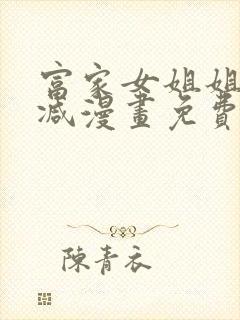 富家女姐姐
减漫畫免費
陳青衣